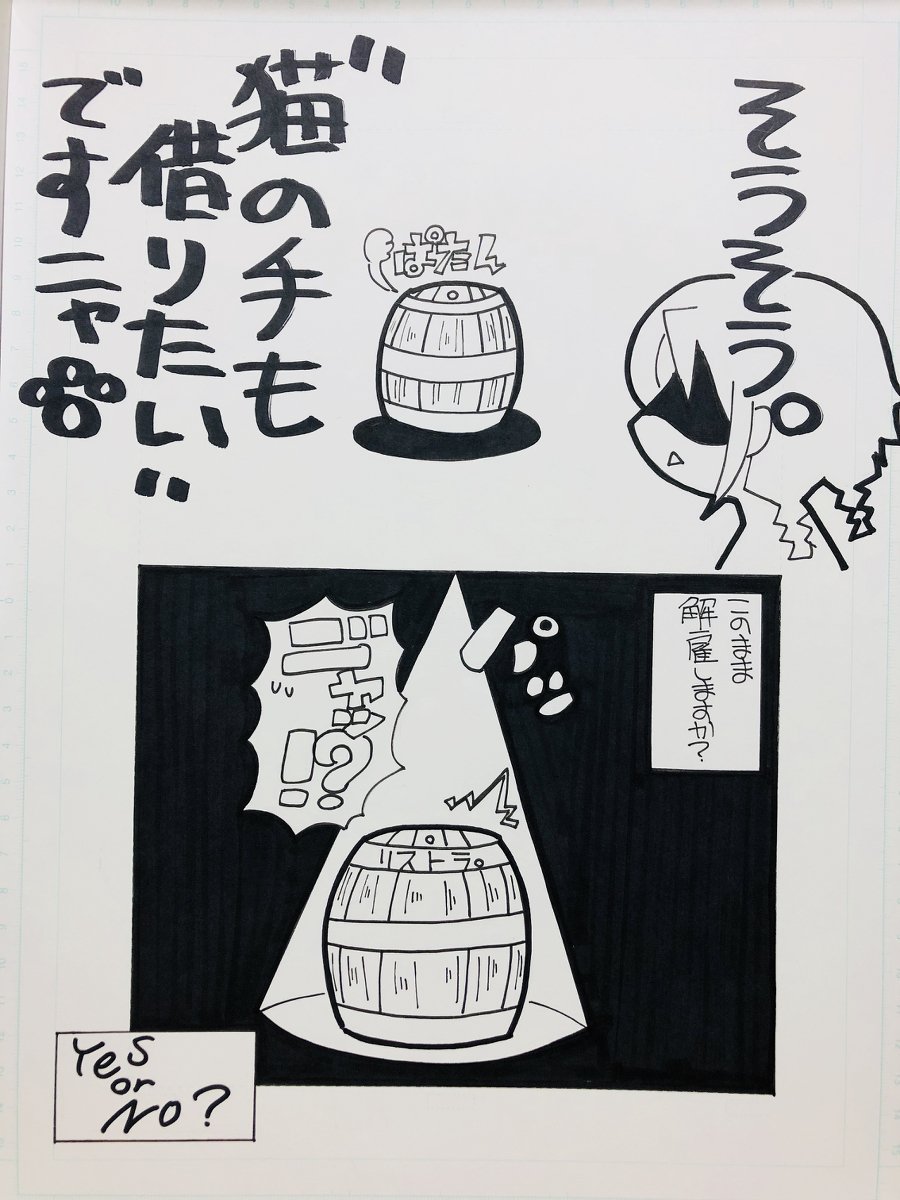 そうそう。
ぱたん
"猫の手も
借りたい"
ですニャ
このまま
解雇しますか?
ニ゛ャッ!?
リストラ。
Yes
or
No?